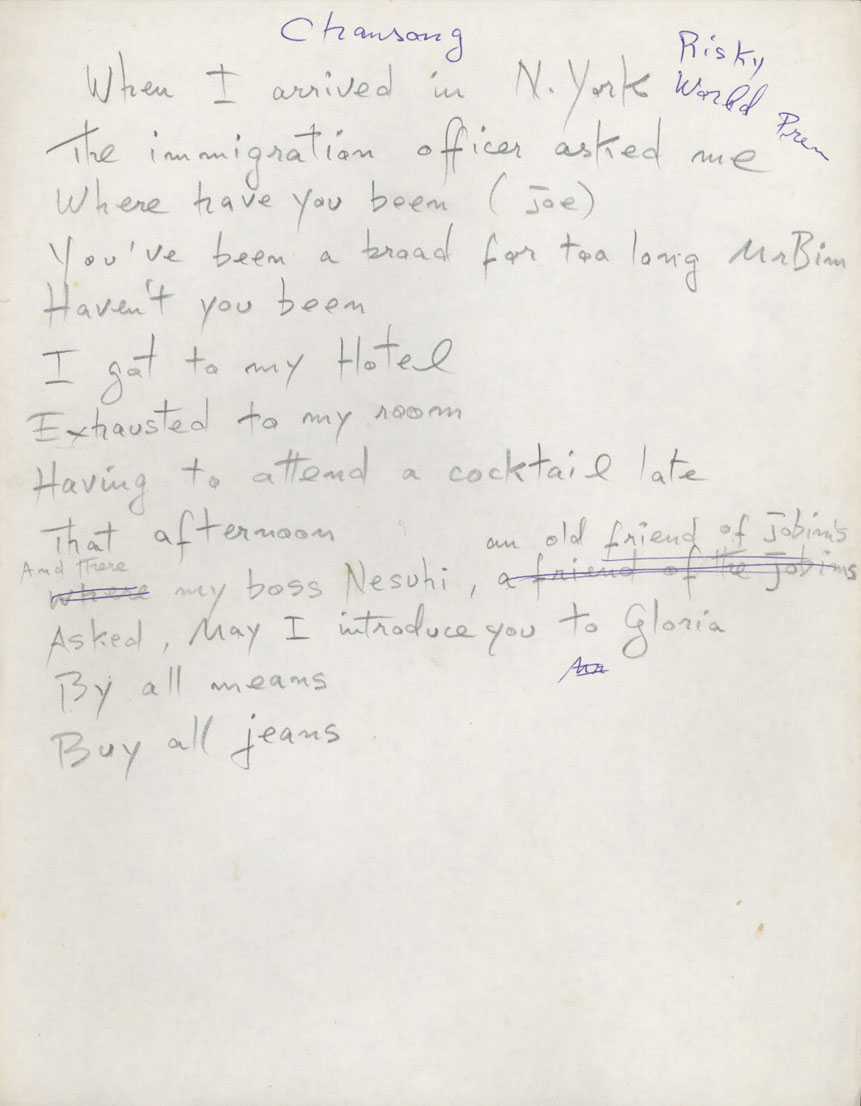 Chansong
Risky
World
Prem
When I arrived in N. York
The immigration officer asked me
Where have you been (Joe)
You've been a broad for too long Mr Bim
Haven't you been
I got to my Hotel
Exhausted to my room
Having to attend a cocktail late
That afternoon
an old friend of Jobim's
And there
where my boss Nesuhi, a friend of the Jobims
Asked, May I introduce you to Gloria
By all means
Buy all jeans